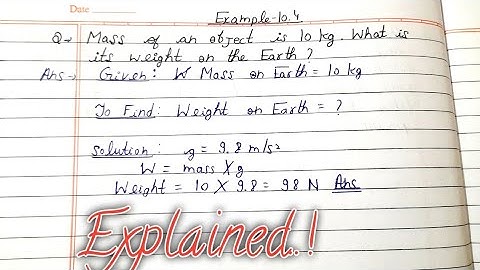 Date
Example-10.4
Q→ Mass of an object is 10 kg. What is
its weight on the Earth?
Ans→ Given: W Mass on Earth = 10 kg
To Find: Weight on Earth = ?
Solution: g = 9.8 m/s²
W = mass X g
Weight = 10 X 9.8 = 98 N Ans
Explained.!